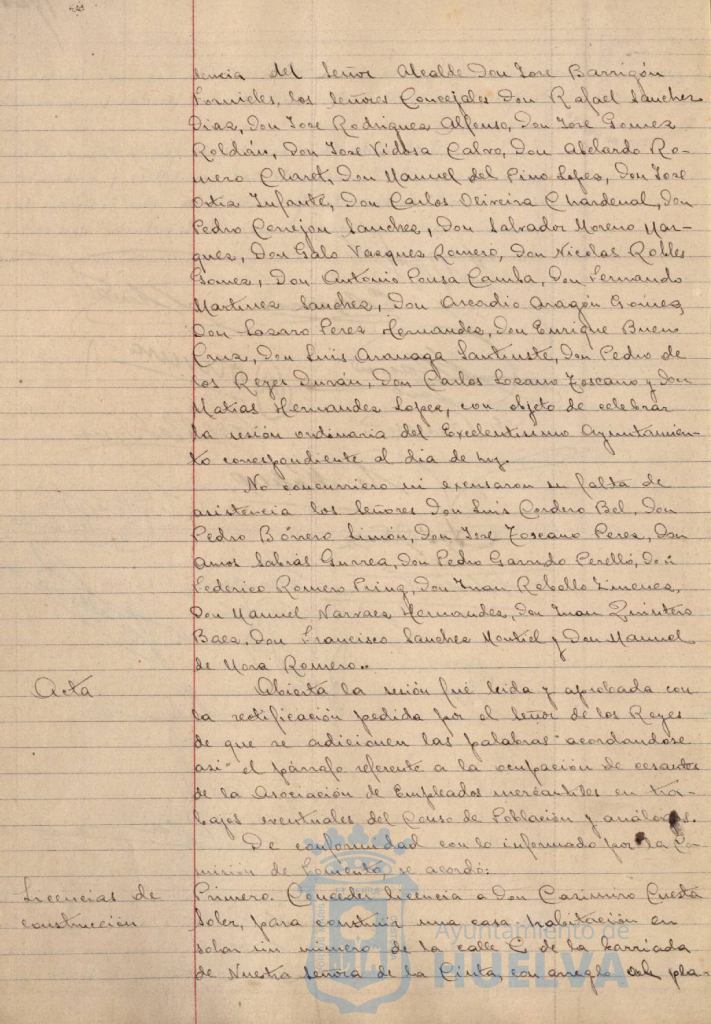 dencia del Señor Alcalde Don Jose Barrigón
Fornieles, los Señores Concejales Don Rafael Sanchez
Diaz, Don Jose Rodriguez Alfonso, Don Jose Gomez
Roldán, Don Jose Vidosa Calvo, Don Abelardo Ro-
mero Claret, Don Manuel del Pino Lopez, Don Jose
Ortiz Infante, Don Carlos Oliveira Chardenal, Don
Pedro Cerrejon Sanchez, Don Salvador Moreno Mar-
quez, Don Galo Vazquez Romero, Don Nicolas Robles
Gomez, Don Antonio Pousa Camba, Don Fernando
Martinez Sanchez, Don Arcadio Aragón Gómez
Don Lazaro Perez Hernandez, Don Enrique Bueno
Cruz, Don Luis Aranaga Santiuste, Don Pedro de
los Reyes Durán, Don Carlos Lozano Toscano y Don
Matias Hernandez Lopez, con objeto de celebrar
la sesión ordinaria del Excelentisimo Ayuntamien-
to correspondiente al dia de hoy.
No concurriero ni excusaron su falta de
asistencia los Señores Don Luis Cordero Bel, Don
Pedro Bórrero Limón, Don Jose Toscano Perez, Don
Amos Sabrás Gurrea, Don Pedro Garrido Perelló, Don
Federico Romero Pring, Don Juan Rebollo Jimenez,
Don Manuel Narvaez Hernandez, Don Juan Quintero
Baez, Don Francisco Sanchez Montiel y Don Manuel
de Mora Romero..
Acta
Abierta la sesión fué leida y aprobada con
la rectificación pedida por el Señor de los Reyes
de que se adicionen las palabras "acordandose
asi" el párrafo referente a la ocupación de cesantes
de la Asociación de Empleados mercantiles en tra-
bajos eventuales del Censo de Población y análogos.
De conformidad con lo informado por la Co-
mision de Fomento, se acordó:
Licencias de
construcción
Primero. Conceder licencia a Don Casimiro Cuesta
Soler, para construir una casa-habitación en
solar sin numero de la calle C. de la barriada
de Nuestra Señora de la Cinta, con arreglo pla-
Ayuntamiento de
HUELVA